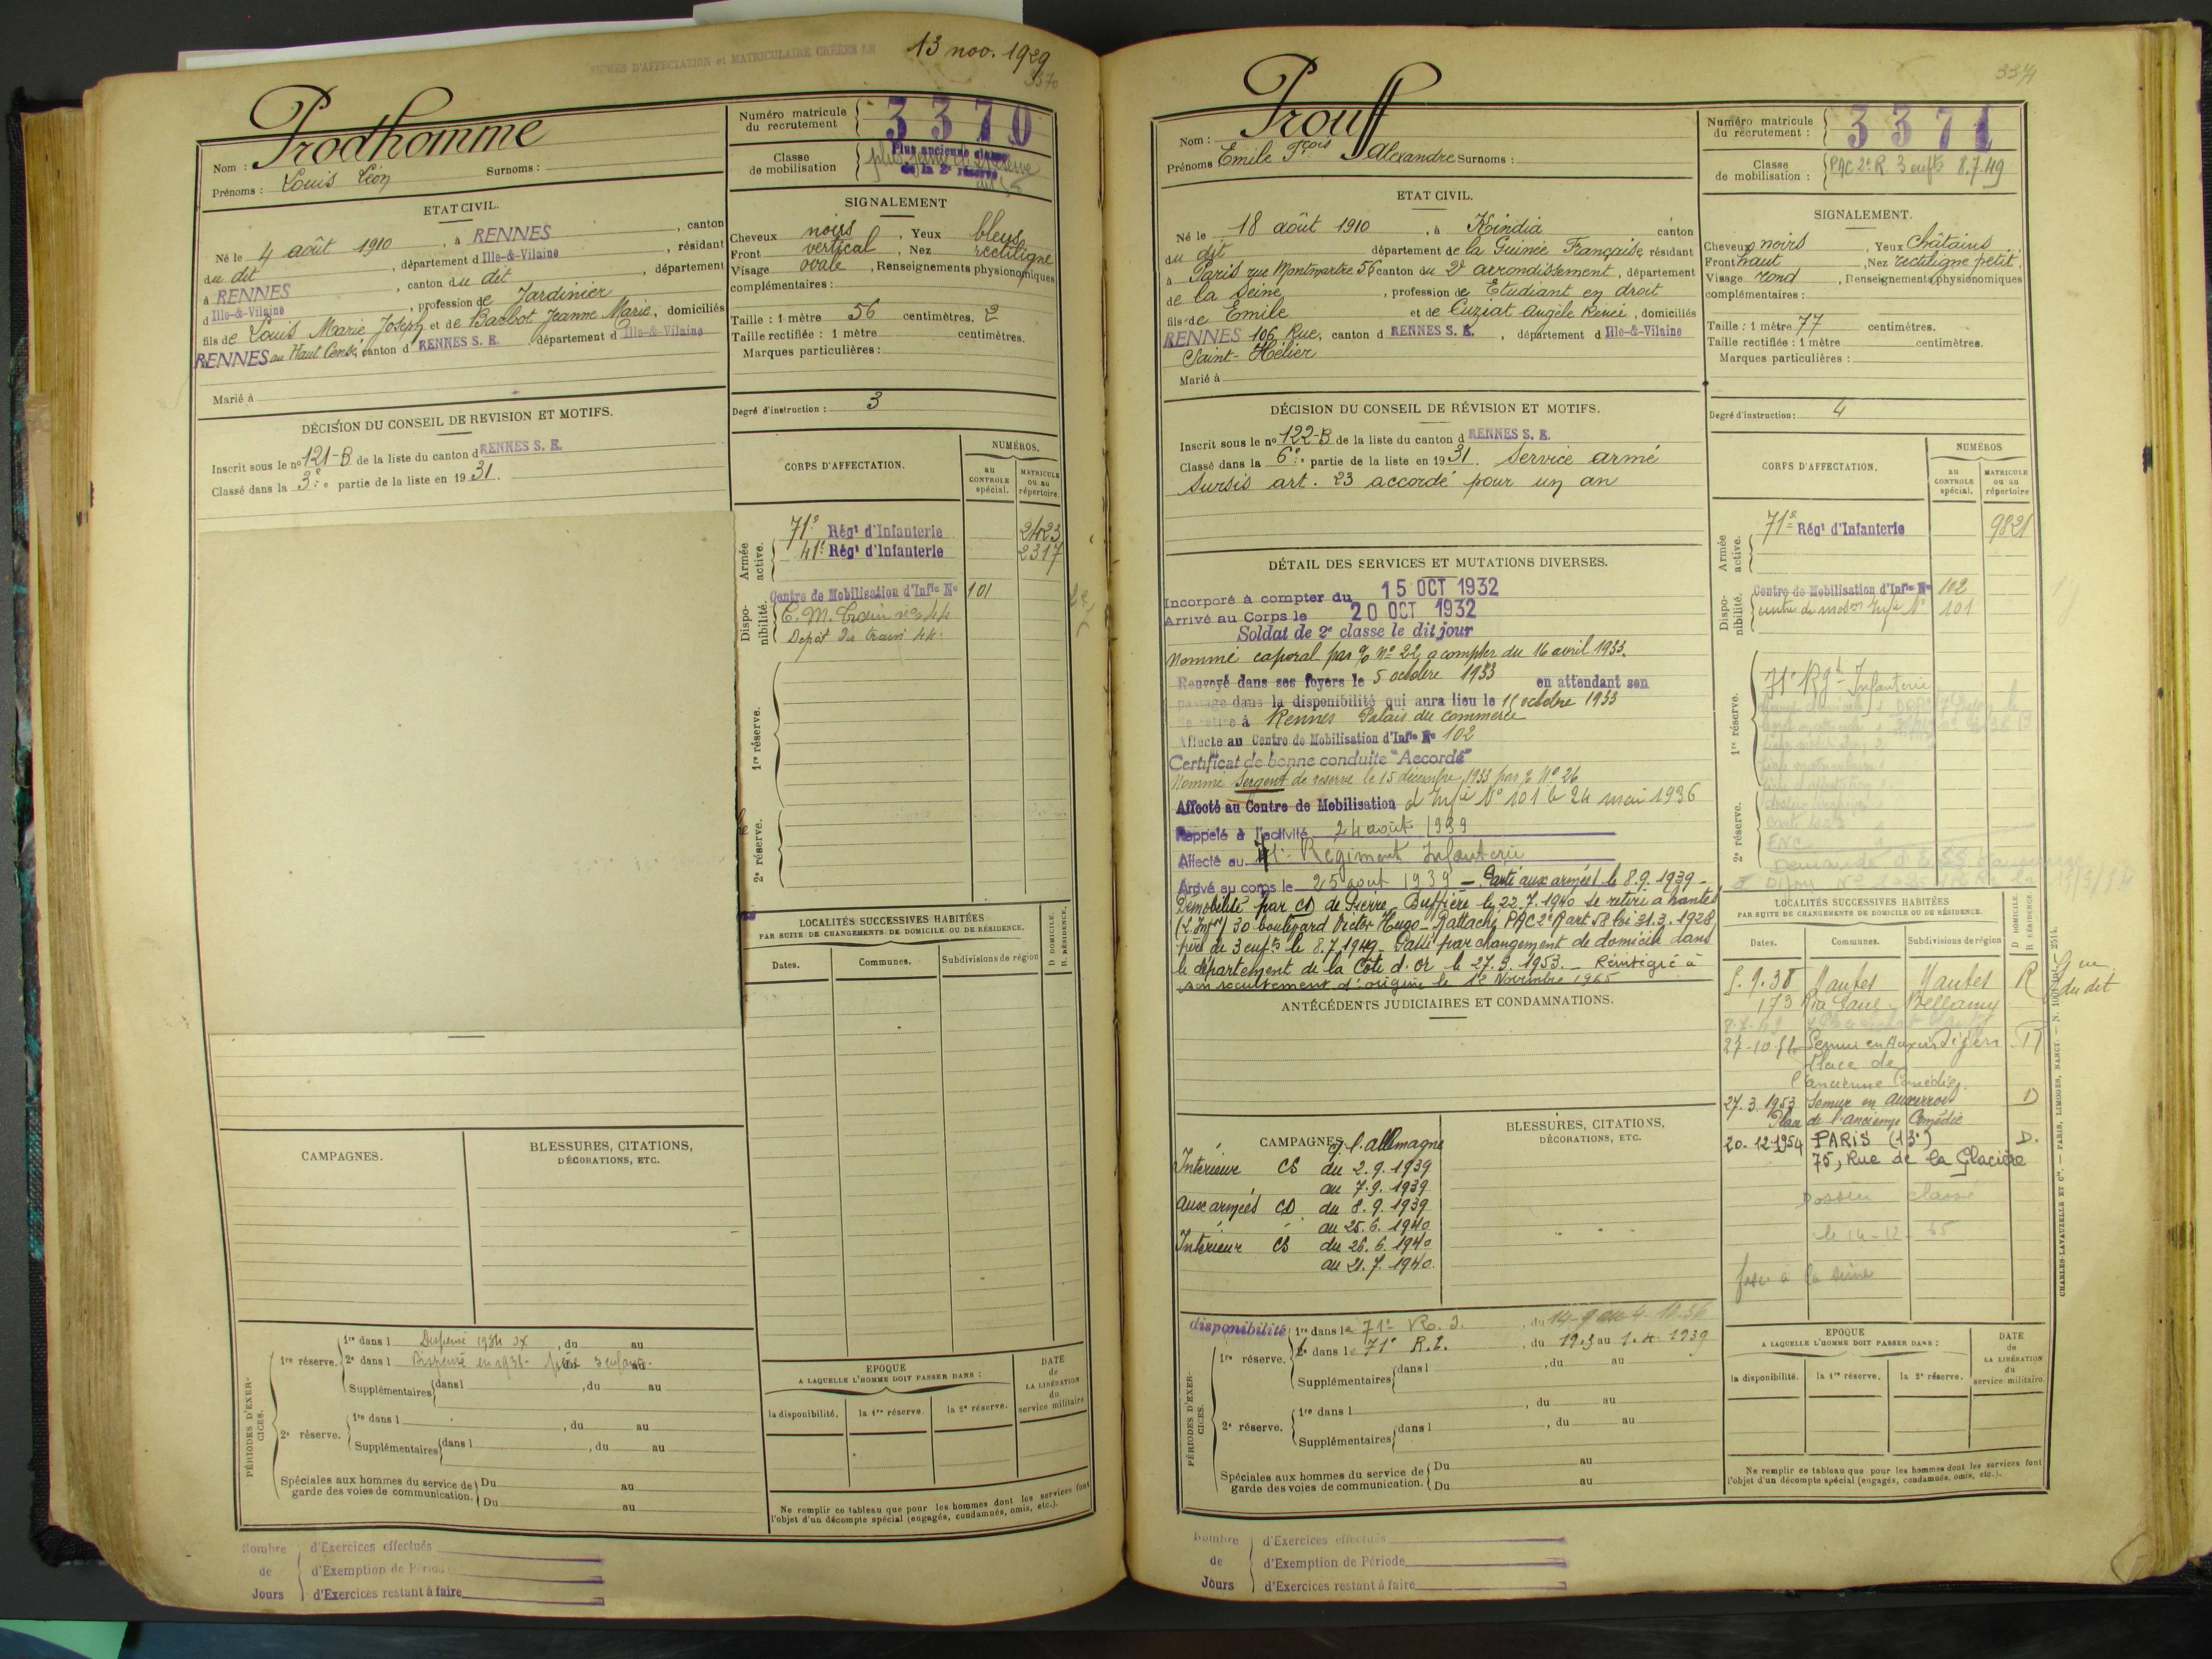 FICHES D'AFFECTATION et MATRICULAIRE CRÉÉES LE 13 nov. 1929
3370
Nom : Prodhomme
Prénoms : Louis Léon Surnoms :
Numéro matricule du recrutement 3370
Classe de mobilisation
Plus ancienne classe
de la 2e réserve
ETAT CIVIL.
Né le 4 août 1910, à RENNES, canton
du dit, département d Ille-&-Vilaine, résidant
à RENNES, canton du dit, département
d Ille-&-Vilaine, profession de Jardinier
fils de Louis Marie Joseph et de Barbot Jeanne Marie, domiciliés
RENNES au Haut Censé, canton d RENNES S. E. département d Ille-&-Vilaine
Marié à
SIGNALEMENT
Cheveux noirs, Yeux bleus
Front vertical, Nez rectiligne
Visage ovale, Renseignements physionomiques
complémentaires :
Taille : 1 mètre 56 centimètres. 2
Taille rectifiée : 1 mètre centimètres.
Marques particulières :
Degré d'instruction : 3
DÉCISION DU CONSEIL DE REVISION ET MOTIFS.
Inscrit sous le no 121-B de la liste du canton d RENNES S. E.
Classé dans la 3e partie de la liste en 1931.
CORPS D'AFFECTATION.
NUMÉROS.
au CONTROLE spécial.
MATRICULE ou au répertoire.
Armée active.
71e Régt d'Infanterie 2423
41e Régt d'Infanterie 2317
Disponibilité.
Centre de Mobilisation d'Infie No 101
C. M. Train no 44
Dépôt du train 44
1re réserve.
2e réserve.
LOCALITÉS SUCCESSIVES HABITÉES
PAR SUITE DE CHANGEMENTS DE DOMICILE OU DE RÉSIDENCE.
Dates. Communes. Subdivisions de région
D. DOMICILE.
R. RÉSIDENCE.
CAMPAGNES.
BLESSURES, CITATIONS,
DÉCORATIONS, ETC.
PÉRIODES D'EXERCICES.
1re réserve.
1re dans l Dispensé 1934, du au
2e dans l Dispensé en 1936 - père 3 enfants
Supplémentaires dans l, du au
2e réserve.
1re dans l, du au
Supplémentaires dans l, du au
Spéciales aux hommes du service de garde des voies de communication.
Du au
Du au
EPOQUE
A LAQUELLE L'HOMME DOIT PASSER DANS :
la disponibilité. la 1re réserve. la 2e réserve.
DATE de LA LIBÉRATION du service militaire
Ne remplir ce tableau que pour les hommes dont les services font
l'objet d'un décompte spécial (engagés, condamnés, omis, etc.).
Nombre de Jours
d'Exercices effectués
d'Exemption de Période
d'Exercices restant à faire
3371
Nom : Prouff
Prénoms Emile Fçois Alexandre Surnoms :
Numéro matricule du recrutement : 3371
Classe de mobilisation : PAC 2e R 3 enfts 8.7.49
ETAT CIVIL.
Né le 18 août 1910, à Kindia canton
du dit département de la Guinée Française, résidant
à Paris rue Montmartre 56 canton du 2e arrondissement, département
de la Seine, profession de Etudiant en droit
fils de Emile et de Cuziat Angèle Renée, domiciliés
RENNES 106 Rue, canton d RENNES S. E., département d Ille-&-Vilaine
Saint-Hélier
Marié à
SIGNALEMENT.
Cheveux noirs, Yeux châtains
Front haut, Nez rectiligne petit
Visage rond, Renseignements physionomiques
complémentaires :
Taille : 1 mètre 77 centimètres.
Taille rectifiée : 1 mètre centimètres.
Marques particulières :
Degré d'instruction : 4
DÉCISION DU CONSEIL DE RÉVISION ET MOTIFS.
Inscrit sous le no 122-B de la liste du canton d RENNES S. E.
Classé dans la 6e partie de la liste en 1931. Service armé
Sursis art. 23 accordé pour un an
CORPS D'AFFECTATION.
NUMÉROS
au CONTROLE spécial.
MATRICULE ou au répertoire
Armée active.
71e Régt d'Infanterie 9821
Disponibilité.
Centre de Mobilisation d'Infie No 102
centre de mobon Infie No 101
1re réserve.
71e Rgt Infanterie
2e réserve.
DÉTAIL DES SERVICES ET MUTATIONS DIVERSES.
Incorporé à compter du 15 OCT 1932
Arrivé au Corps le 20 OCT 1932
Soldat de 2e classe le dit jour
Nommé caporal par % No 22 à compter du 16 avril 1933.
Renvoyé dans ses foyers le 5 octobre 1933 en attendant son
passage dans la disponibilité qui aura lieu le 15 octobre 1933
Se retire à Rennes Palais du commerce
Affecté au Centre de Mobilisation d'Infie No 102
Certificat de bonne conduite "Accordé"
Nommé Sergent de réserve le 15 décembre 1933 par % No 26
Affecté au Centre de Mobilisation d'Infie No 101 le 24 mai 1936
Rappelé à l'activité 24 août 1939
Affecté au 41e Régiment Infanterie
Arrivé au corps le 25 août 1939 - Parti aux armées le 8.9.1939 -
Démobilisé par CD de Pierre Buffière le 22.7.1940 se retire à Nantes
(L. Infre) 30 boulevard Victor Hugo - Rattaché PAC 2e R art 58 loi 31.3.1928
père de 3 enfts le 8.7.1949 - Passé par changement de domicile dans
le département de la Côte d'or le 27.3.1953. - Réintégré à
son recrutement d'origine le 12 Novembre 1965
ANTÉCÉDENTS JUDICIAIRES ET CONDAMNATIONS.
LOCALITÉS SUCCESSIVES HABITÉES
PAR SUITE DE CHANGEMENTS DE DOMICILE OU DE RÉSIDENCE.
Dates. Communes. Subdivisions de région
D. DOMICILE.
R. RÉSIDENCE
9.38 Nantes Nantes R
173 Rue Paul Bellamy
27-10-51 Semur en Auxois Dijon
Place de
l'ancienne Comédie
27.3.1953 Semur en Auxerrois D
Place de l'ancienne Comédie
20.12.1954 PARIS (13e) D.
75, Rue de la Glacière
Dossier classé
le 14-12-55
CAMPAGNES.
g. c. allemagne
Intérieur CS du 2.9.1939
au 7.9.1939
aux armées CD du 8.9.1939
au 25.6.1940
Intérieur CS du 26.6.1940
au 21.7.1940
BLESSURES, CITATIONS,
DÉCORATIONS, ETC.
PÉRIODES D'EXERCICES.
disponibilité 1re dans le 71e R. I., du 14-9 au 4-10.36
1re réserve. 2e dans le 71e R.I., du 12.3 au 1.4.1939
Supplémentaires dans l, du au
2e réserve.
1re dans l, du au
Supplémentaires dans l, du au
Spéciales aux hommes du service de garde des voies de communication.
Du au
Du au
EPOQUE
A LAQUELLE L'HOMME DOIT PASSER DANS :
la disponibilité. la 1re réserve. la 2e réserve.
DATE de LA LIBÉRATION du service militaire.
Ne remplir ce tableau que pour les hommes dont les services font
l'objet d'un décompte spécial (engagés, condamnés, omis, etc.).
Nombre de Jours
d'Exercices effectués
d'Exemption de Période
d'Exercices restant à faire
CHARLES-LAVAUZELLE ET Cie. — PARIS, LIMOGES, NANCY.